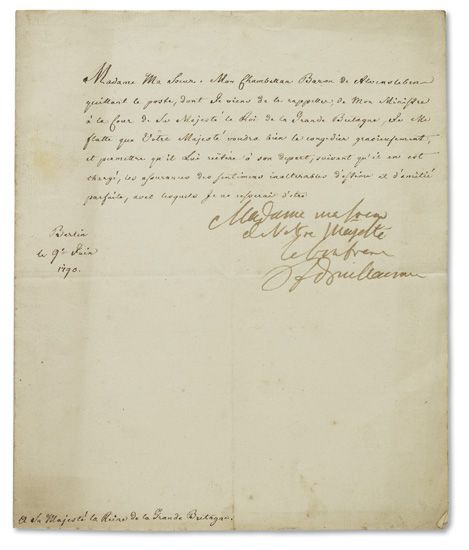 Madame Ma Soeur. Mon Chambellan Baron de Alvensleben
quittant le poste, dont Je viens de le rappeller, de Mon Ministre
à la Cour de Sa Majesté le Roi de la Grande Bretagne, Je Me
flatte que Votre Majesté voudra bien le congédier gracieusement,
et permettre qu'il Lui réitère à son depart, suivant qu'il en est
chargé, les assurances des sentimens inaltérables d'estime et d'amitié
parfaite, avec lesquels Je ne cesserai d'être
Madame ma soeur
de Votre Majesté
le bon frere
F Guillaume
Berlin
le 9e Juin
1790.
A Sa Majesté la Reine de la Grande Bretagne.